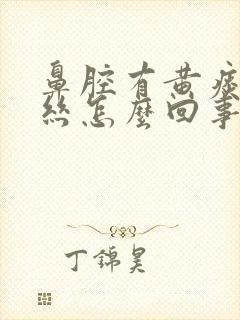 鼻腔有黄痰
丝怎麼回事
丁錦昊